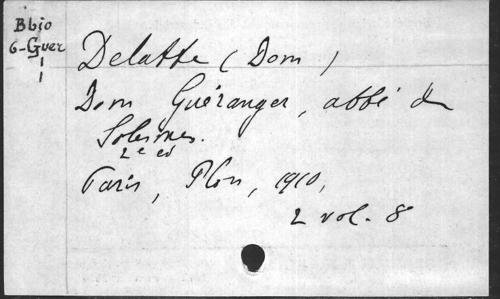 Bbio
6-Guer
1
1
Delatte (Dom)
Dom Guéranger, abbé de
Solesmes.
2e ed
Paris, Plon, 1910,
2 vol. 8°